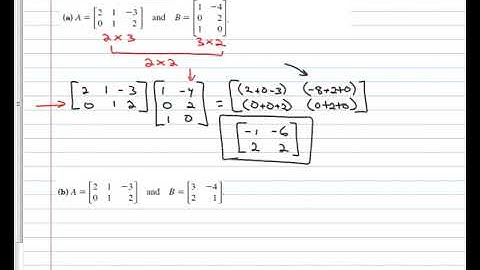 (a) A = [2 1 -3; 0 1 2] and B = [1 -4; 0 2; 1 0].
2 × 3 3 × 2
2 × 2
[2 1 -3; 0 1 2] [1 -4; 0 2; 1 0] = [(2+0-3) (-8+2+0); (0+0+2) (0+2+0)]
[-1 -6; 2 2]
(b) A = [2 1 -3; 0 1 2] and B = [3 -4; 2 1].